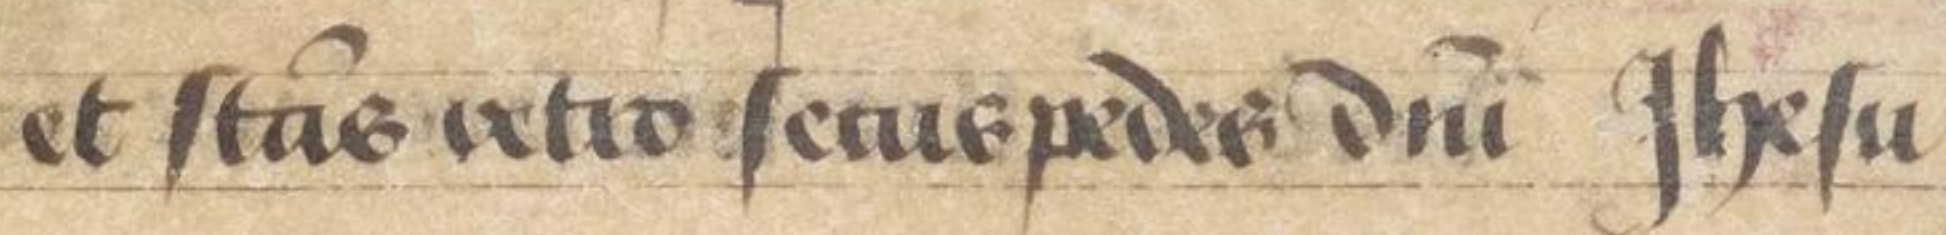 et sta̅s retro secus pedes dn̅i Jhesu